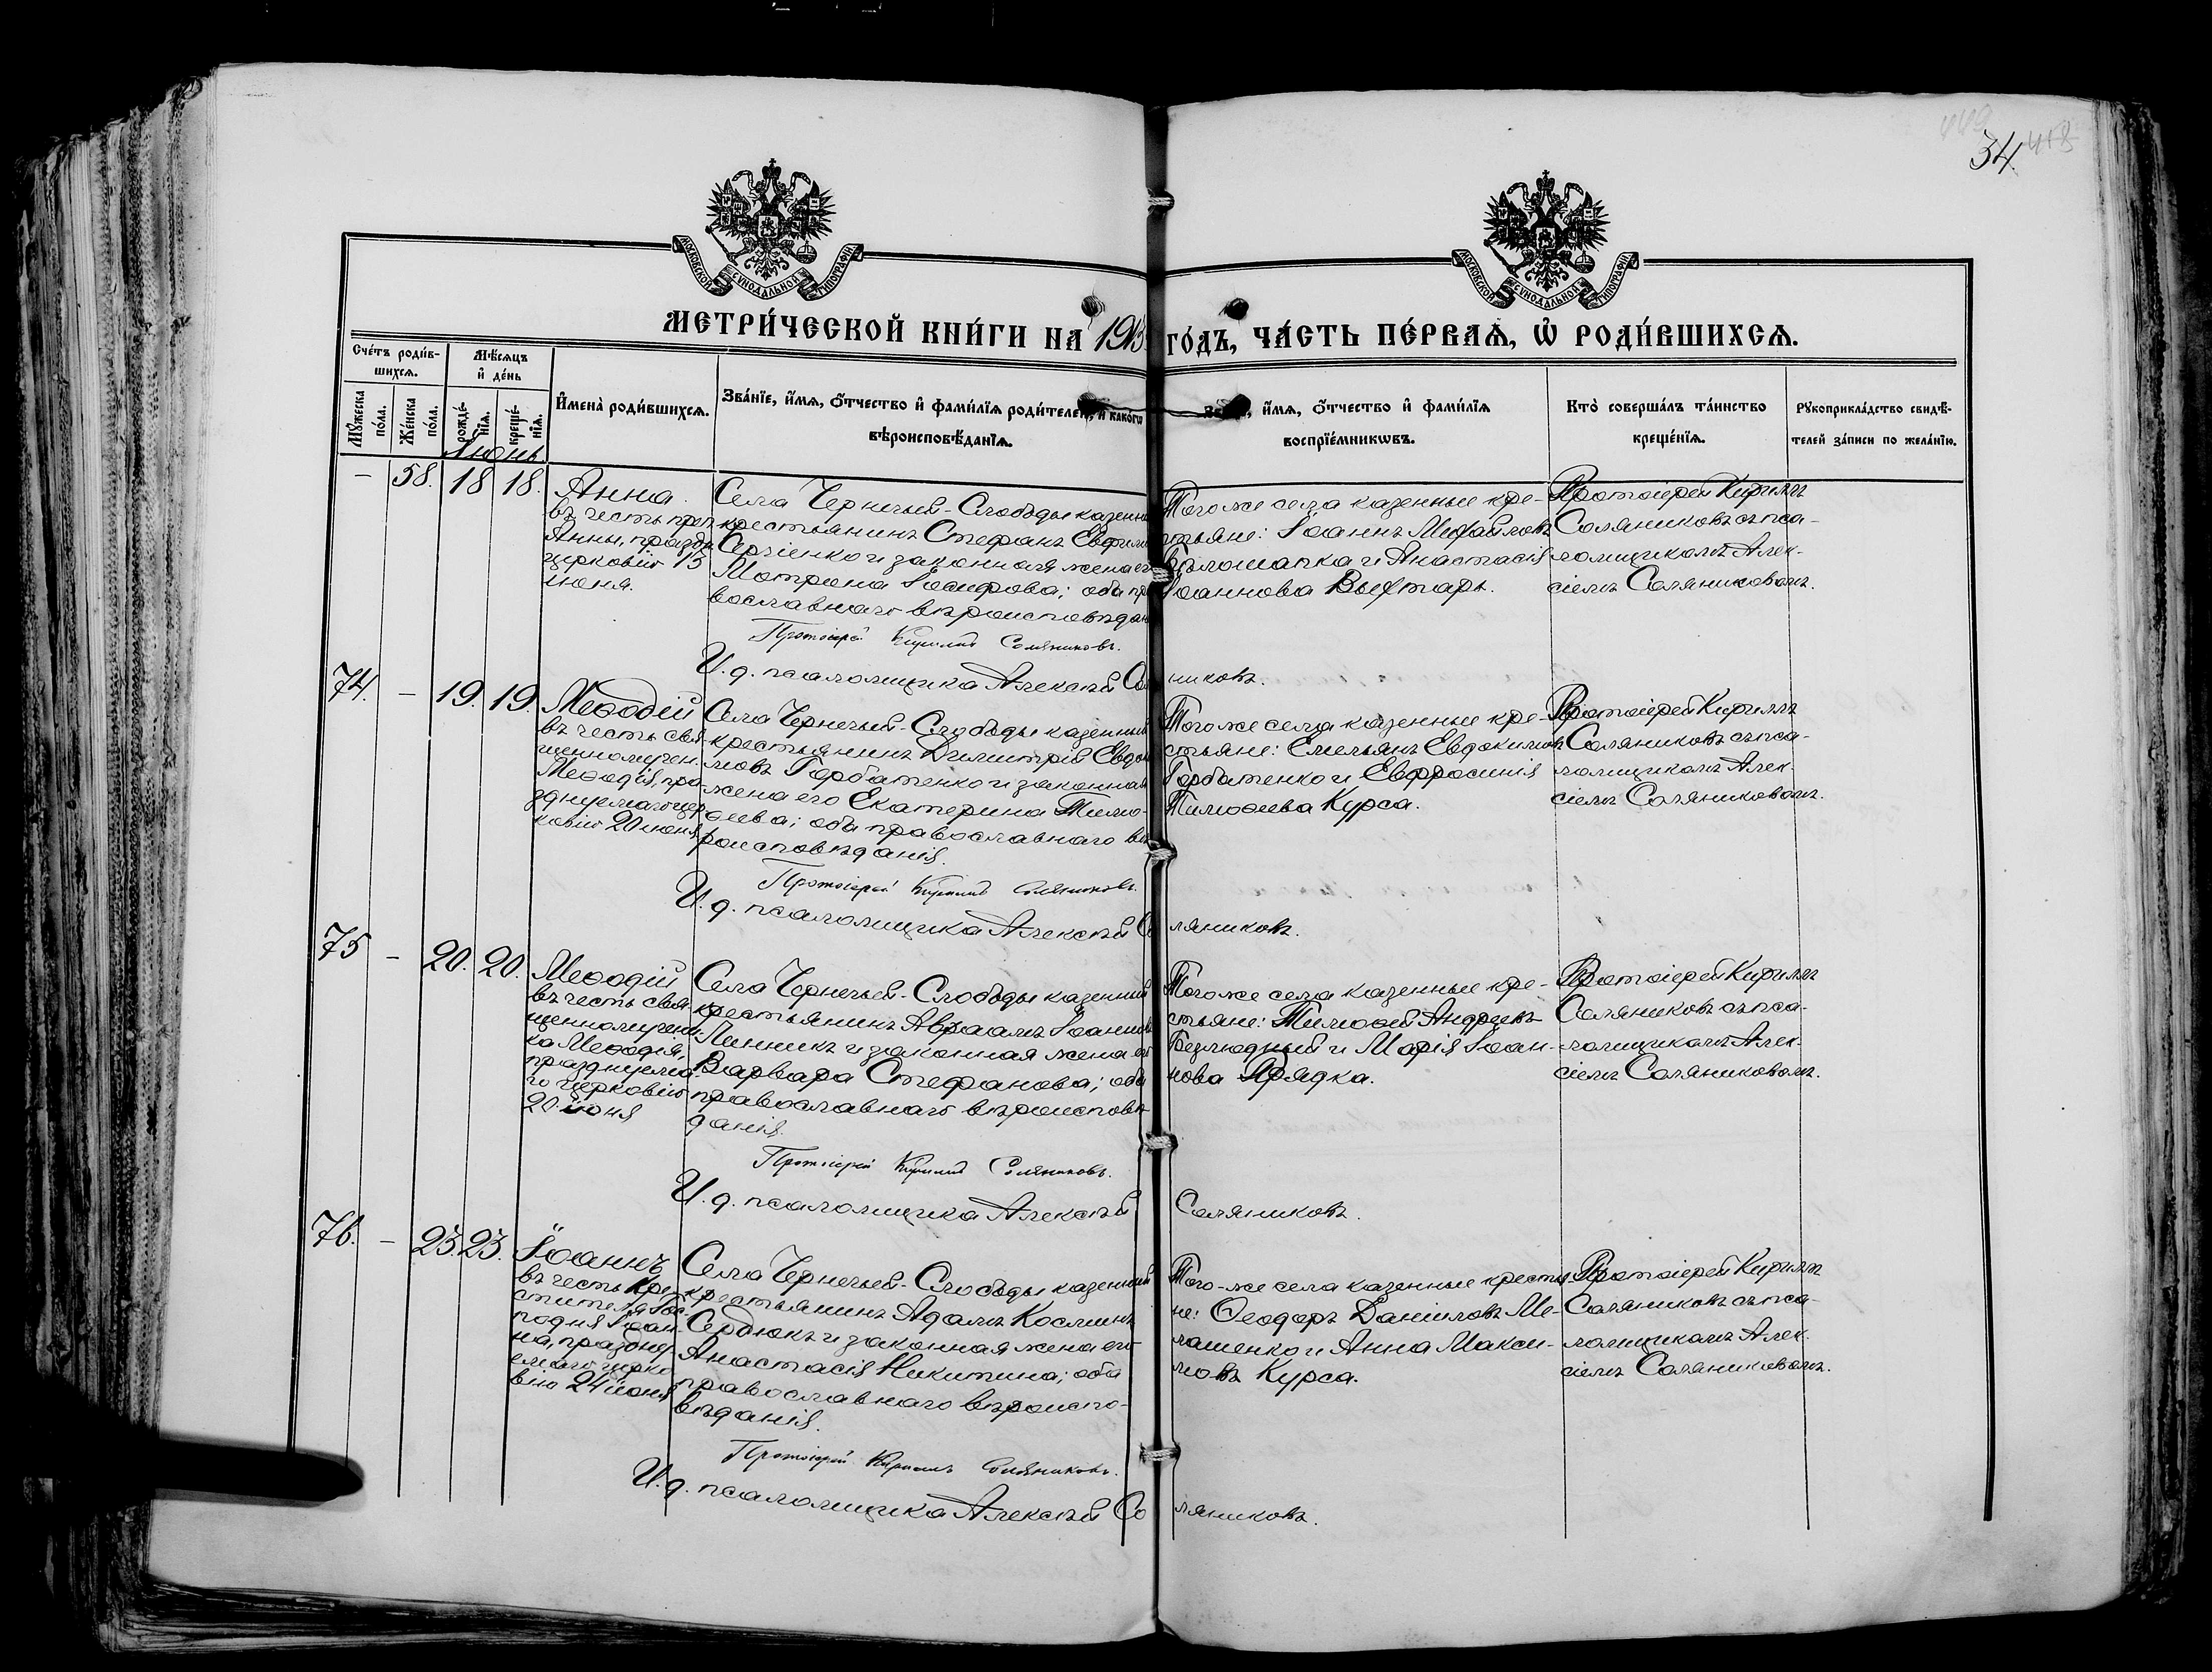 34.
МОСКОВСКОЙ СѴНОДАЛЬНОЙ ТИПОГРАФІИ
МОСКОВСКОЙ СѴНОДАЛЬНОЙ ТИПОГРАФІИ
МЕТРИ́ЧЕСКОЙ КНИ́ГИ НА 1913 ГО́ДЪ, ЧА́СТЬ ПЕ́РВАѦ, Ѡ҆ РОДИ́ВШИХСѦ.
Сче́тъ роди́в-
шихсѧ.
Мꙋ́жеска по́ла.
Же́нска по́ла.
Мѣ́сѧцъ
и҆ де́нь
рожде́-
нїѧ.
креще́-
нїѧ.
И҆мена̀ роди́вшихсѧ.
Зва́нїе, и҆́мѧ, ѻ҆́тчество и҆ фами́лїѧ роди́телей, и҆ како́гѡ
вѣроисповѣ́данїѧ.
и҆́мѧ, ѻ҆́тчество и҆ фами́лїѧ
воспрїе́мникѡвъ.
Кто̀ соверша́лъ та́инство
креще́нїѧ.
Рꙋкоприкла́дство свидѣ́-
телей за́писи по жела́нїю.
Іюнь.
– 58. 18 18.
Анна.
въ честь преп.
Анны, праздн.
церковію 13
іюня.
Села Чернечьей-Слободы казенн
крестьянинъ Стефанъ Евфим
Сергіенко и законная жена ег
Матрона Іосифова; оба пр
вославнаго вѣроисповѣдан
Протоіерей Кириллъ Соляниковъ.
И. д. псаломщика Алексѣй Соляниковъ.
Того же села казенные кре-
стьяне: Іоаннъ Михайловъ
Бѣлошапка и Анастасія
Іоаннова Выхтарь.
Протоіерей Кириллъ
Соляниковъ съ пса-
ломщикомъ Алек-
сіемъ Соляниковымъ.
74. – 19. 19.
Меѳодій
въ честь свя-
щенномучен.
Меѳодія, пра-
зднуемаго цер-
ковію 20 іюня
Села Чернечьей-Слободы казенный
крестьянинъ Димитрій Евдоки
мовъ Горбатенко и законная
жена его Екатерина Тимо-
ѳеева; оба православнаго вѣ
роисповѣданія.
Протоіерей Кириллъ Соляниковъ.
И. д. псаломщика Алексѣй Соляниковъ.
Того же села казенные кре-
стьяне: Емельянъ Евдокимовъ
Горбатенко и Евфросинія
Тимоѳеева Курса.
Протоіерей Кириллъ
Соляниковъ съ пса-
ломщикомъ Алек-
сіемъ Соляниковымъ.
75 – 20. 20.
Меѳодій
въ честь свя-
щенномучени-
ка Меѳодія,
празднуема-
го церковію
20 іюня
Села Чернечьей-Слободы казенный
крестьянинъ Авраамъ Іоанновъ
Линникъ и законная жена ег
Варвара Стефанова; оба
православнаго вѣроисповѣ
данія.
Протоіерей Кириллъ Соляниковъ.
И. д. псаломщика Алексѣй Соляниковъ.
Того же села казенные кре-
стьяне: Тимоѳей Андреевъ
Безлюдный и Марія Іоан-
нова Прядка.
Протоіерей Кириллъ
Соляниковъ съ пса-
ломщикомъ Алек-
сіемъ Соляниковымъ.
76. – 23. 23.
Іоаннъ
въ честь Кре-
стителя Гос-
подня Іоан-
на, праздну-
емаго церко
вію 24 іюня
Села Чернечьей-Слободы казенный
крестьянинъ Адамъ Косминъ
Сердюкъ и законная жена его
Анастасія Никитина; оба
православнаго вѣроиспо-
вѣданія.
Протоіерей Кириллъ Соляниковъ.
И. д. псаломщика Алексѣй Соляниковъ.
Того-же села казенные крестья-
не: Ѳеодоръ Даніиловъ Ме-
лашенко и Анна Макси-
мовъ Курса.
Протоіерей Кириллъ
Соляниковъ съ пса-
ломщикомъ Алек-
сіемъ Соляниковымъ.